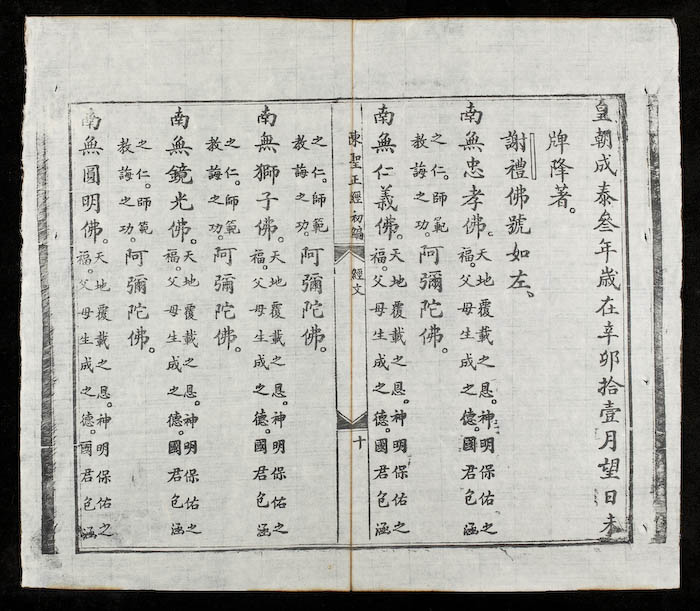 皇朝成泰叄年歲在辛卯拾壹月望日未
牌降著。
謝禮佛號如左。
南無忠孝佛。天地覆載之恩。神明保佑之福。父母生成之德。國君包涵
之仁。師範教誨之功。阿彌陀佛。
南無仁義佛。天地覆載之恩。神明保佑之福。父母生成之德。國君包涵
陳聖正經初編 經文 十
之仁。師範教誨之功。阿彌陀佛。
南無獅子佛。天地覆載之恩。神明保佑之福。父母生成之德。國君包涵
之仁。師範教誨之功。阿彌陀佛。
南無鏡光佛。天地覆載之恩。神明保佑之福。父母生成之德。國君包涵
之仁。師範教誨之功。阿彌陀佛。
南無圓明佛。天地覆載之恩。神明保佑之福。父母生成之德。國君包涵